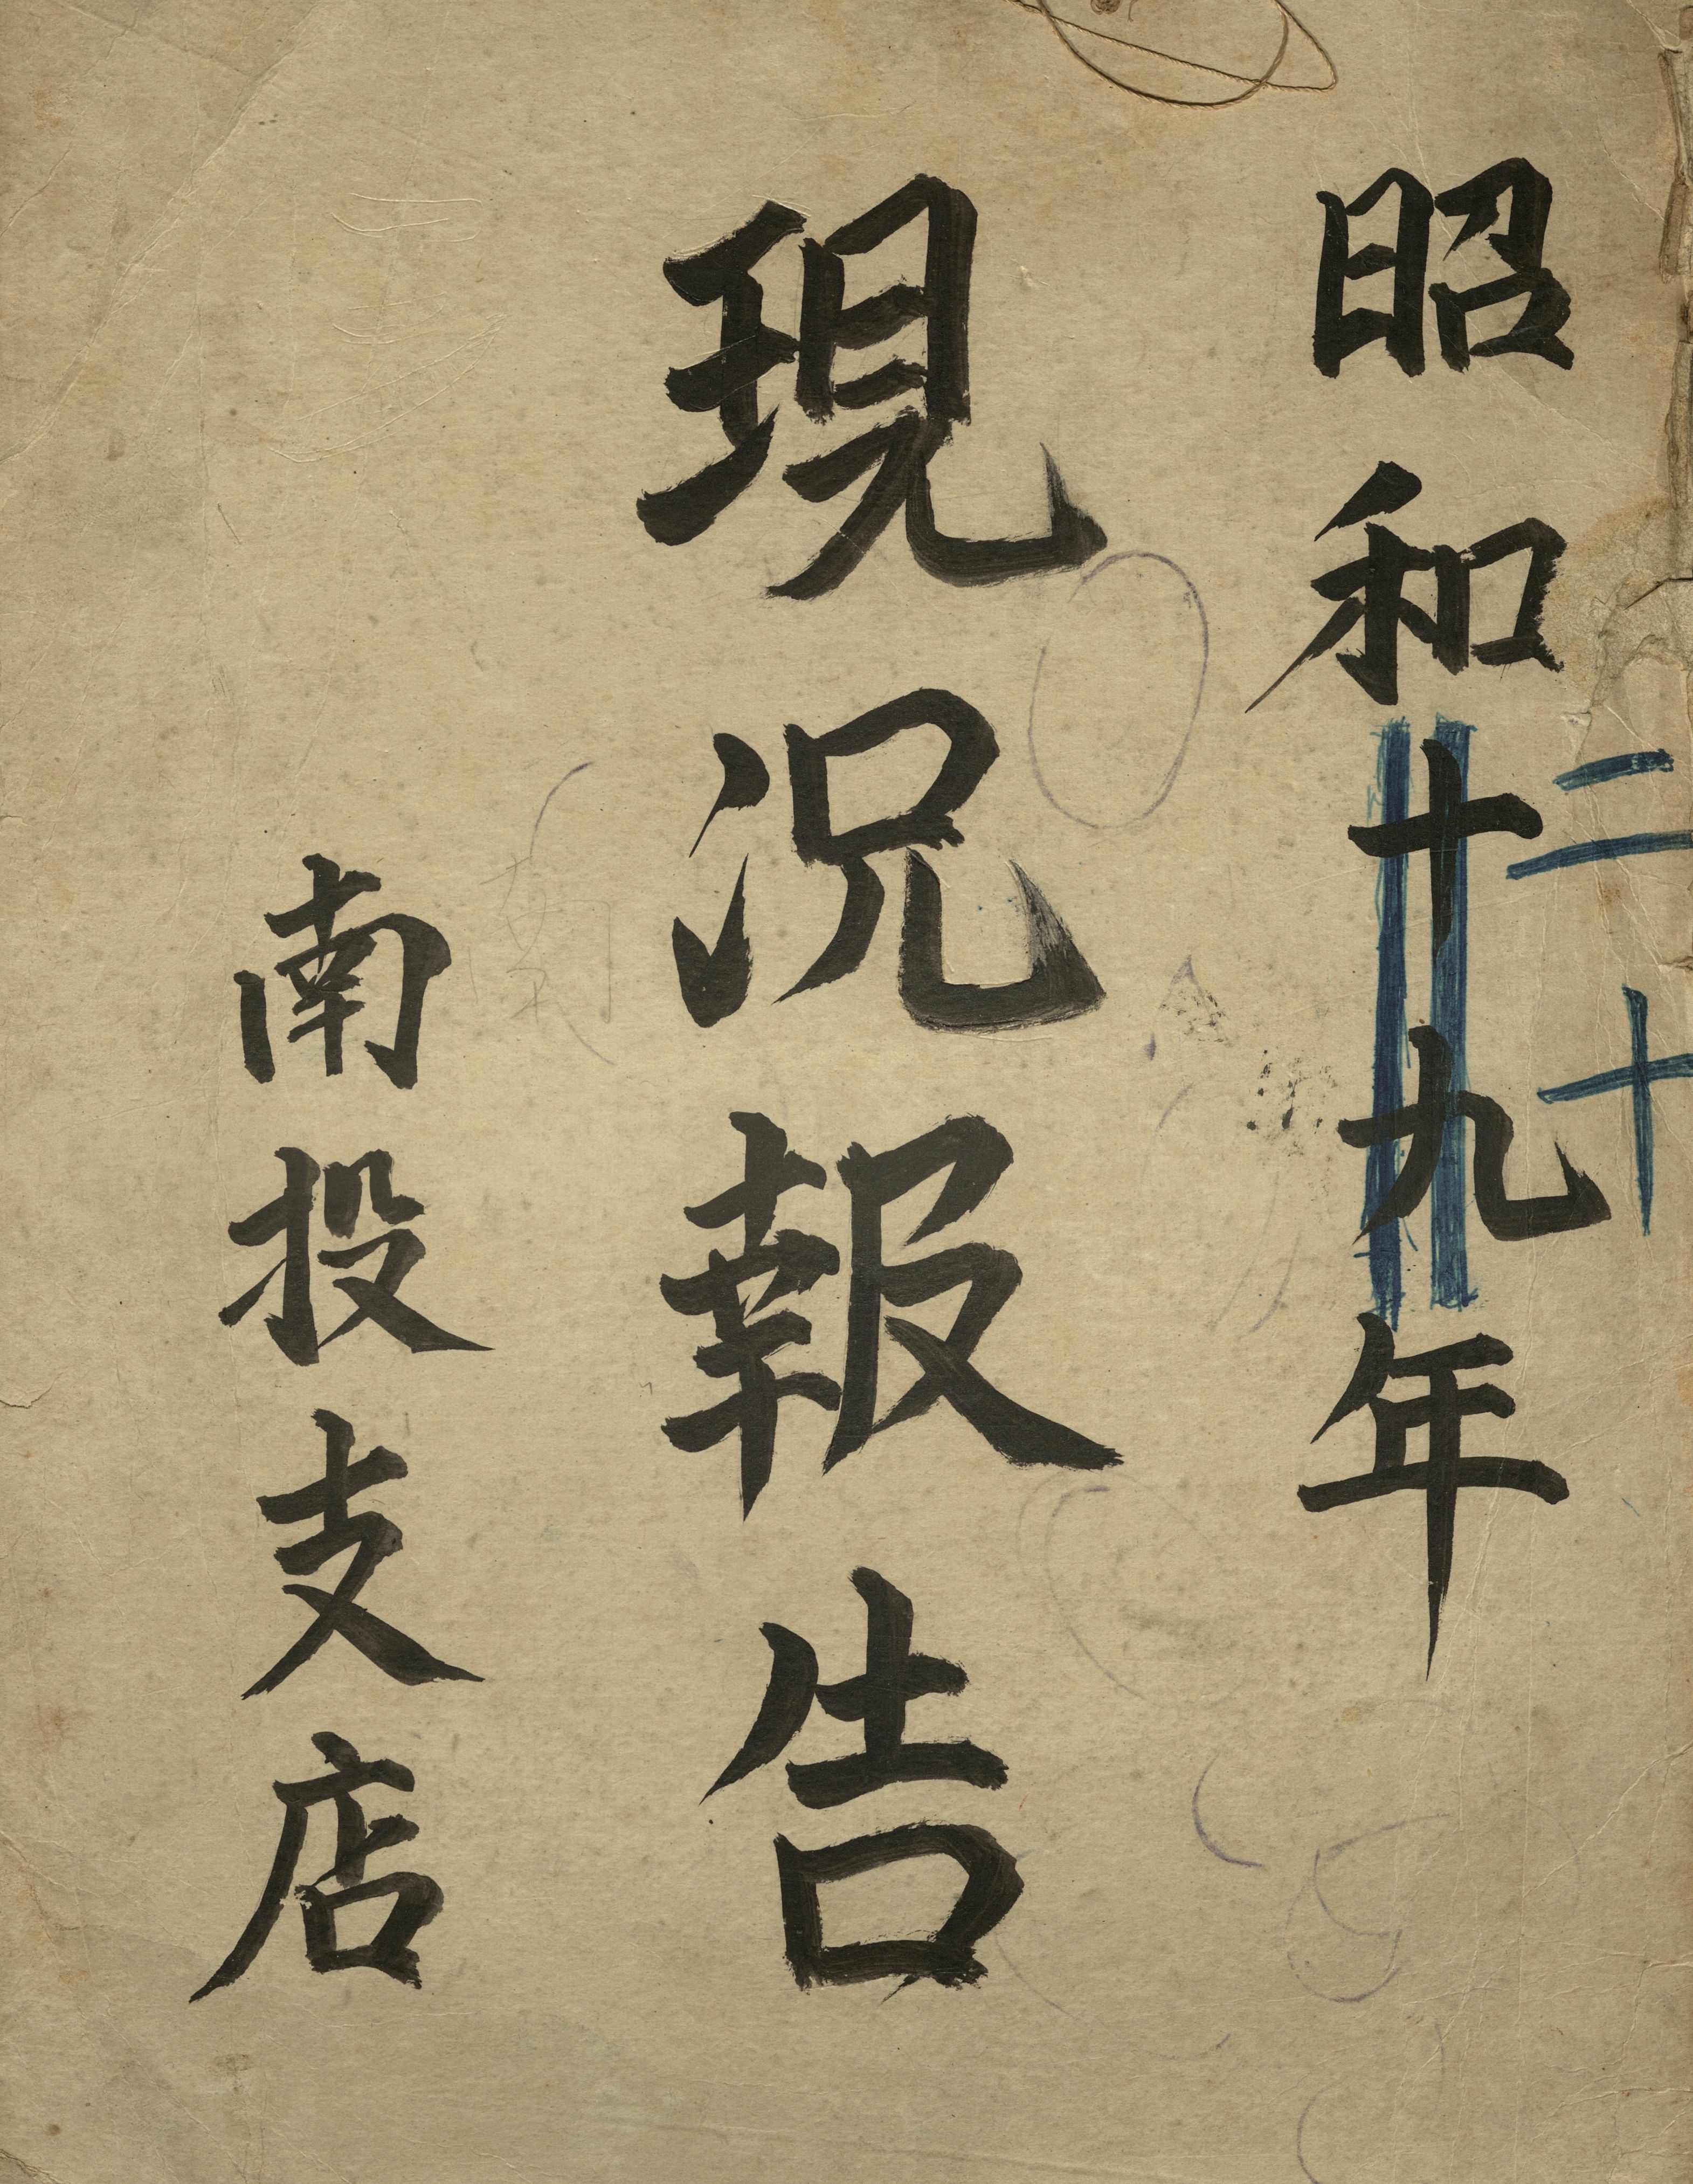 昭和十九年
二十
現況報告
南投支店